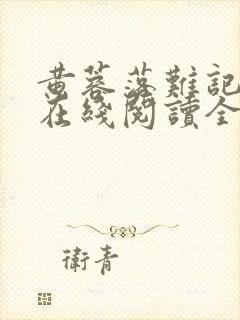 黄蓉落難記
在綫閱讀全
衛青